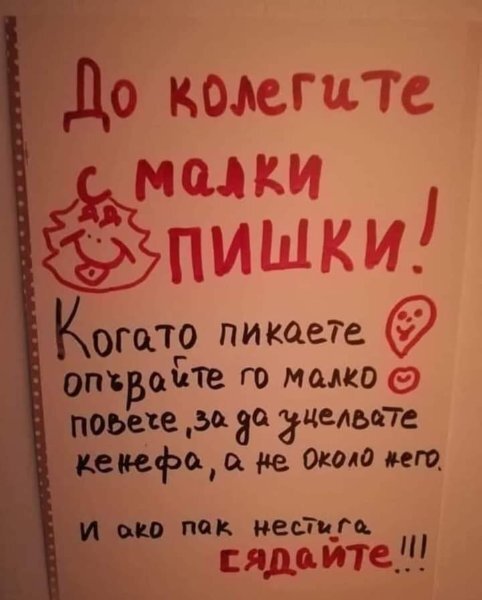 До колегите
с малки
пишки!
Когато пикаете
опъвайте го малко
повече, за да уцелвате
кенефа, а не около него.
И ако пак нестига
сядайте!!!